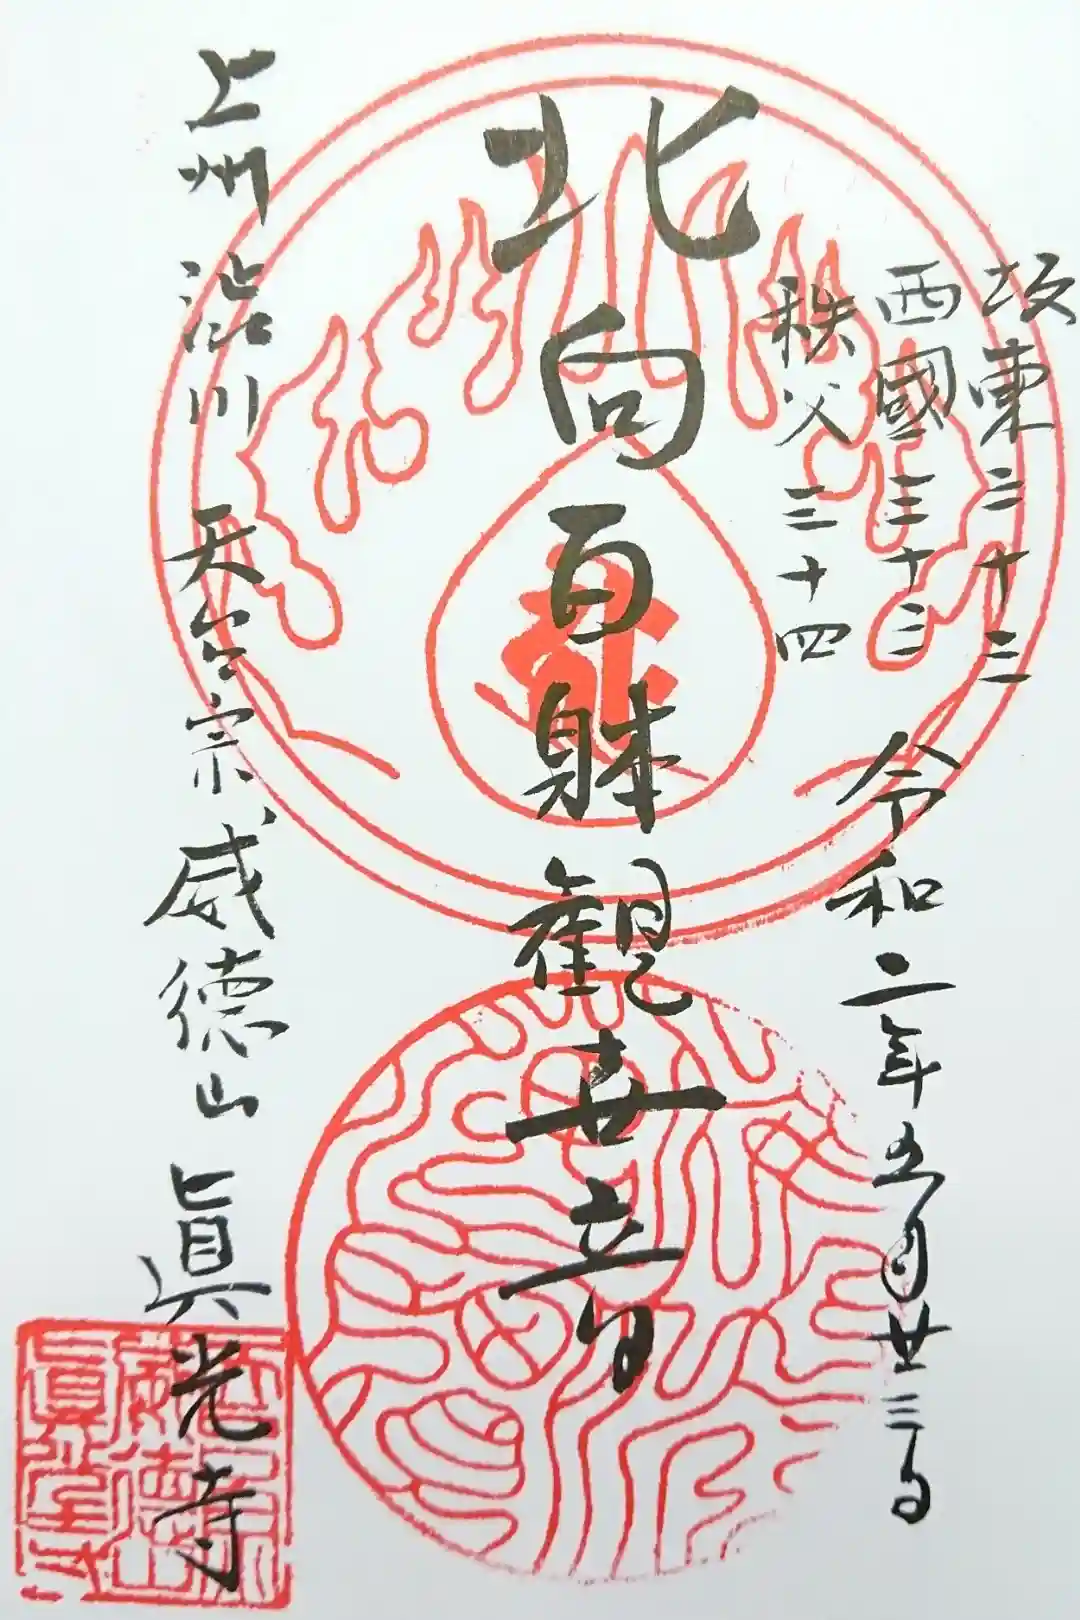 坂東三十三
西國三十三
秩父三十四
令和二年五月廿三日
北向百躰観世音
上州渋川 天台宗 威徳山 眞光寺